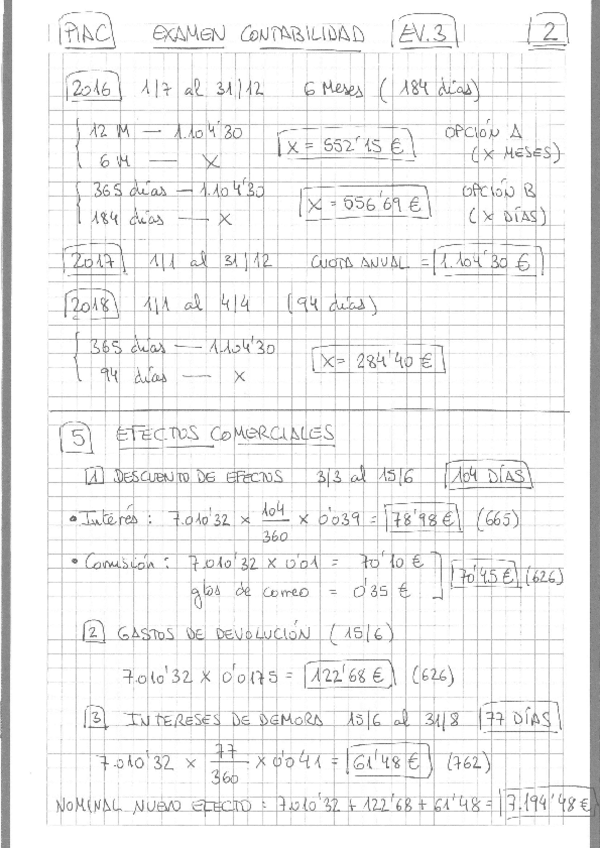 PIAC EXAMEN CONTABILIDAD EV.3 2
2016 1/7 al 31/12 6 Meses (184 días)
12 M — 1.104'30 X = 552'15 € OPCIÓN A
6 M — X (X MESES)
365 días — 1.104'30 X = 556'69 € OPCIÓN B
184 días — X (X DÍAS)
2017 1/1 al 31/12 CUOTA ANUAL = 1.104'30 €
2018 1/1 al 4/4 (94 días)
365 días — 1.104'30 X = 284'40 €
94 días — X
5 EFECTOS COMERCIALES
1 DESCUENTO DE EFECTOS 3/3 al 15/6 104 DÍAS
• Interés : 7.010'32 x 104/360 x 0'039 = 78'98 € (665)
• Comisión : 7.010'32 x 0'01 = 70'10 € 70'45 € (626)
gtos de correo = 0'35 €
2 GASTOS DE DEVOLUCIÓN (15/6)
7.010'32 x 0'0175 = 122'68 € (626)
3 INTERESES DE DEMORA 15/6 al 31/8 77 DÍAS
7.010'32 x 77/360 x 0'041 = 61'48 € (762)
NOMINAL NUEVO EFECTO : 7.010'32 + 122'68 + 61'48 = 7.194'48 €